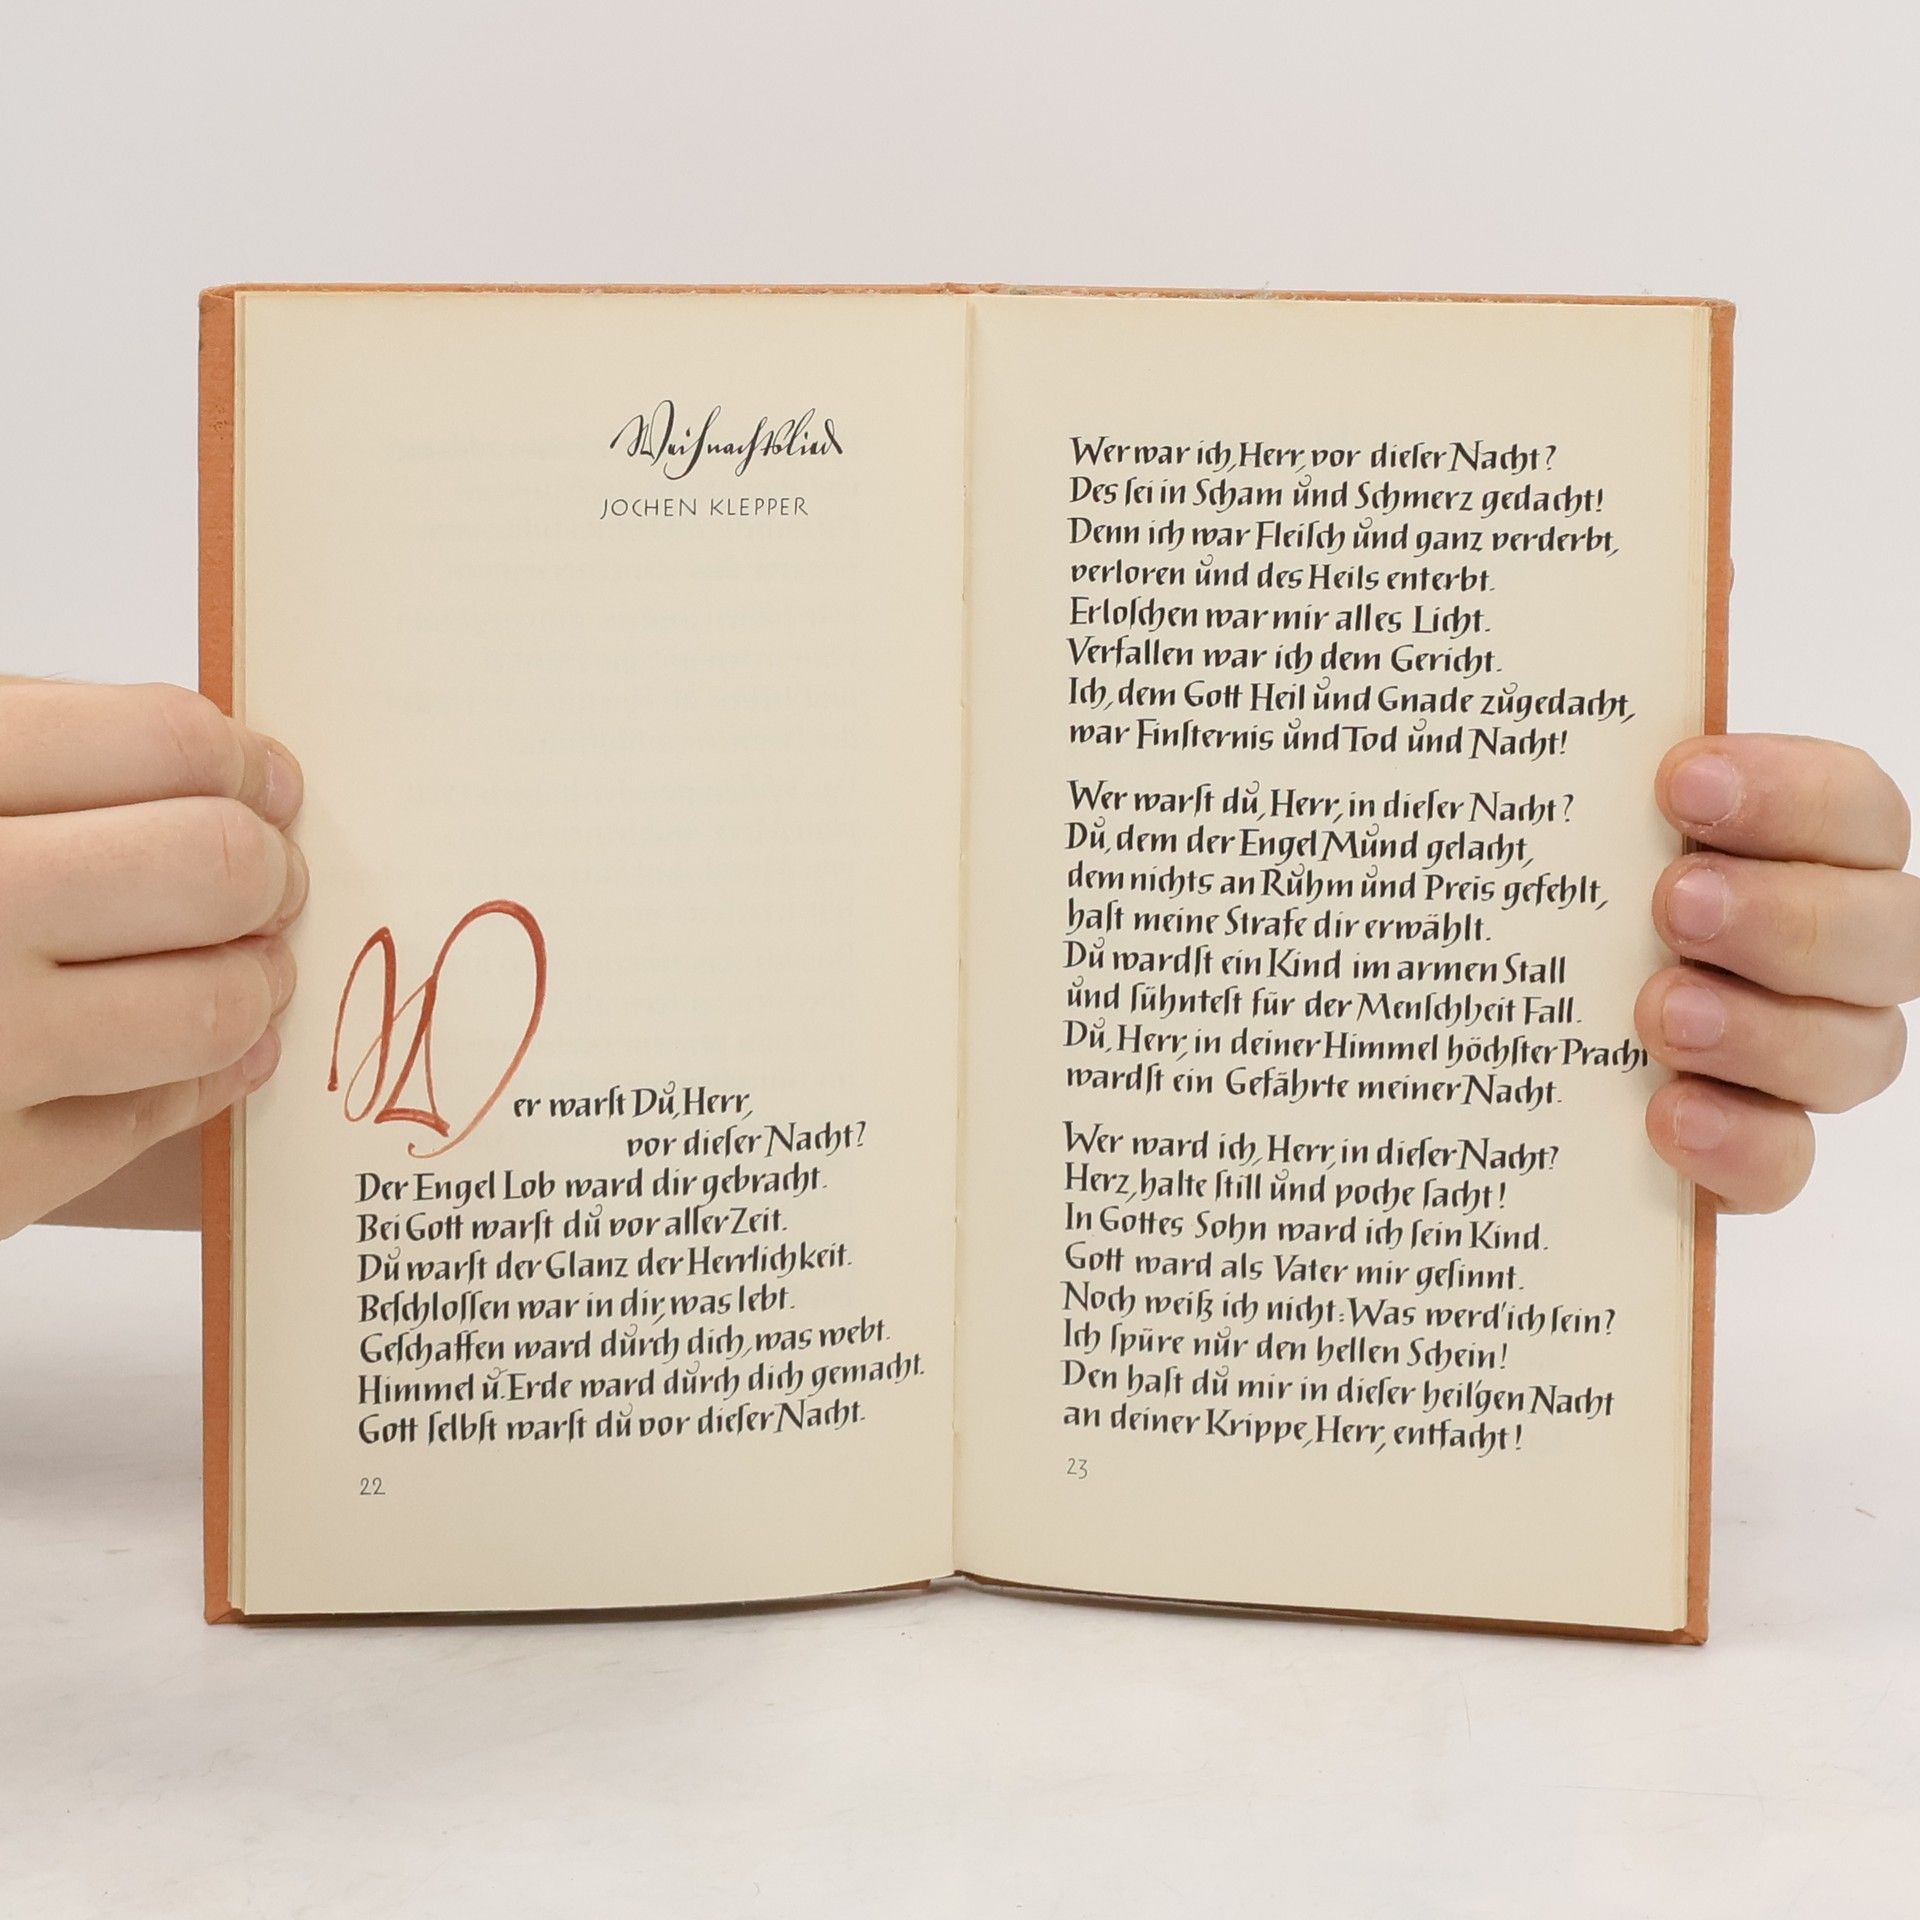 Weihnachtslied
JOCHEN KLEPPER
Wer warſt Du, Herr,
vor dieſer Nacht?
Der Engel Lob ward dir gebracht.
Bei Gott warſt du vor aller Zeit.
Du warſt der Glanz der Herrlichkeit.
Beſchloſſen war in dir, was lebt.
Geſchaffen ward durch dich, was webt.
Himmel u. Erde ward durch dich gemacht.
Gott ſelbſt warſt du vor dieſer Nacht.
22
Wer war ich, Herr, vor dieſer Nacht?
Des ſei in Scham und Schmerz gedacht!
Denn ich war Fleiſch und ganz verderbt,
verloren und des Heils enterbt.
Erloſchen war mir alles Licht.
Verfallen war ich dem Gericht.
Ich, dem Gott Heil und Gnade zugedacht,
war Finſternis und Tod und Nacht!
Wer warſt du, Herr, in dieſer Nacht?
Du, dem der Engel Mund gelacht,
dem nichts an Ruhm und Preis gefehlt,
haſt meine Strafe dir erwählt.
Du wardſt ein Kind im armen Stall
und ſühnteſt für der Menſchheit Fall.
Du, Herr, in deiner Himmel höchſter Pracht
wardſt ein Gefährte meiner Nacht.
Wer ward ich, Herr, in dieſer Nacht?
Herz, halte ſtill und poche ſacht!
In Gottes Sohn ward ich ſein Kind.
Gott ward als Vater mir geſinnt.
Noch weiß ich nicht: Was werd' ich ſein?
Ich ſpüre nur den hellen Schein!
Den haſt du mir in dieſer heil'gen Nacht
an deiner Krippe, Herr, entfacht!
23